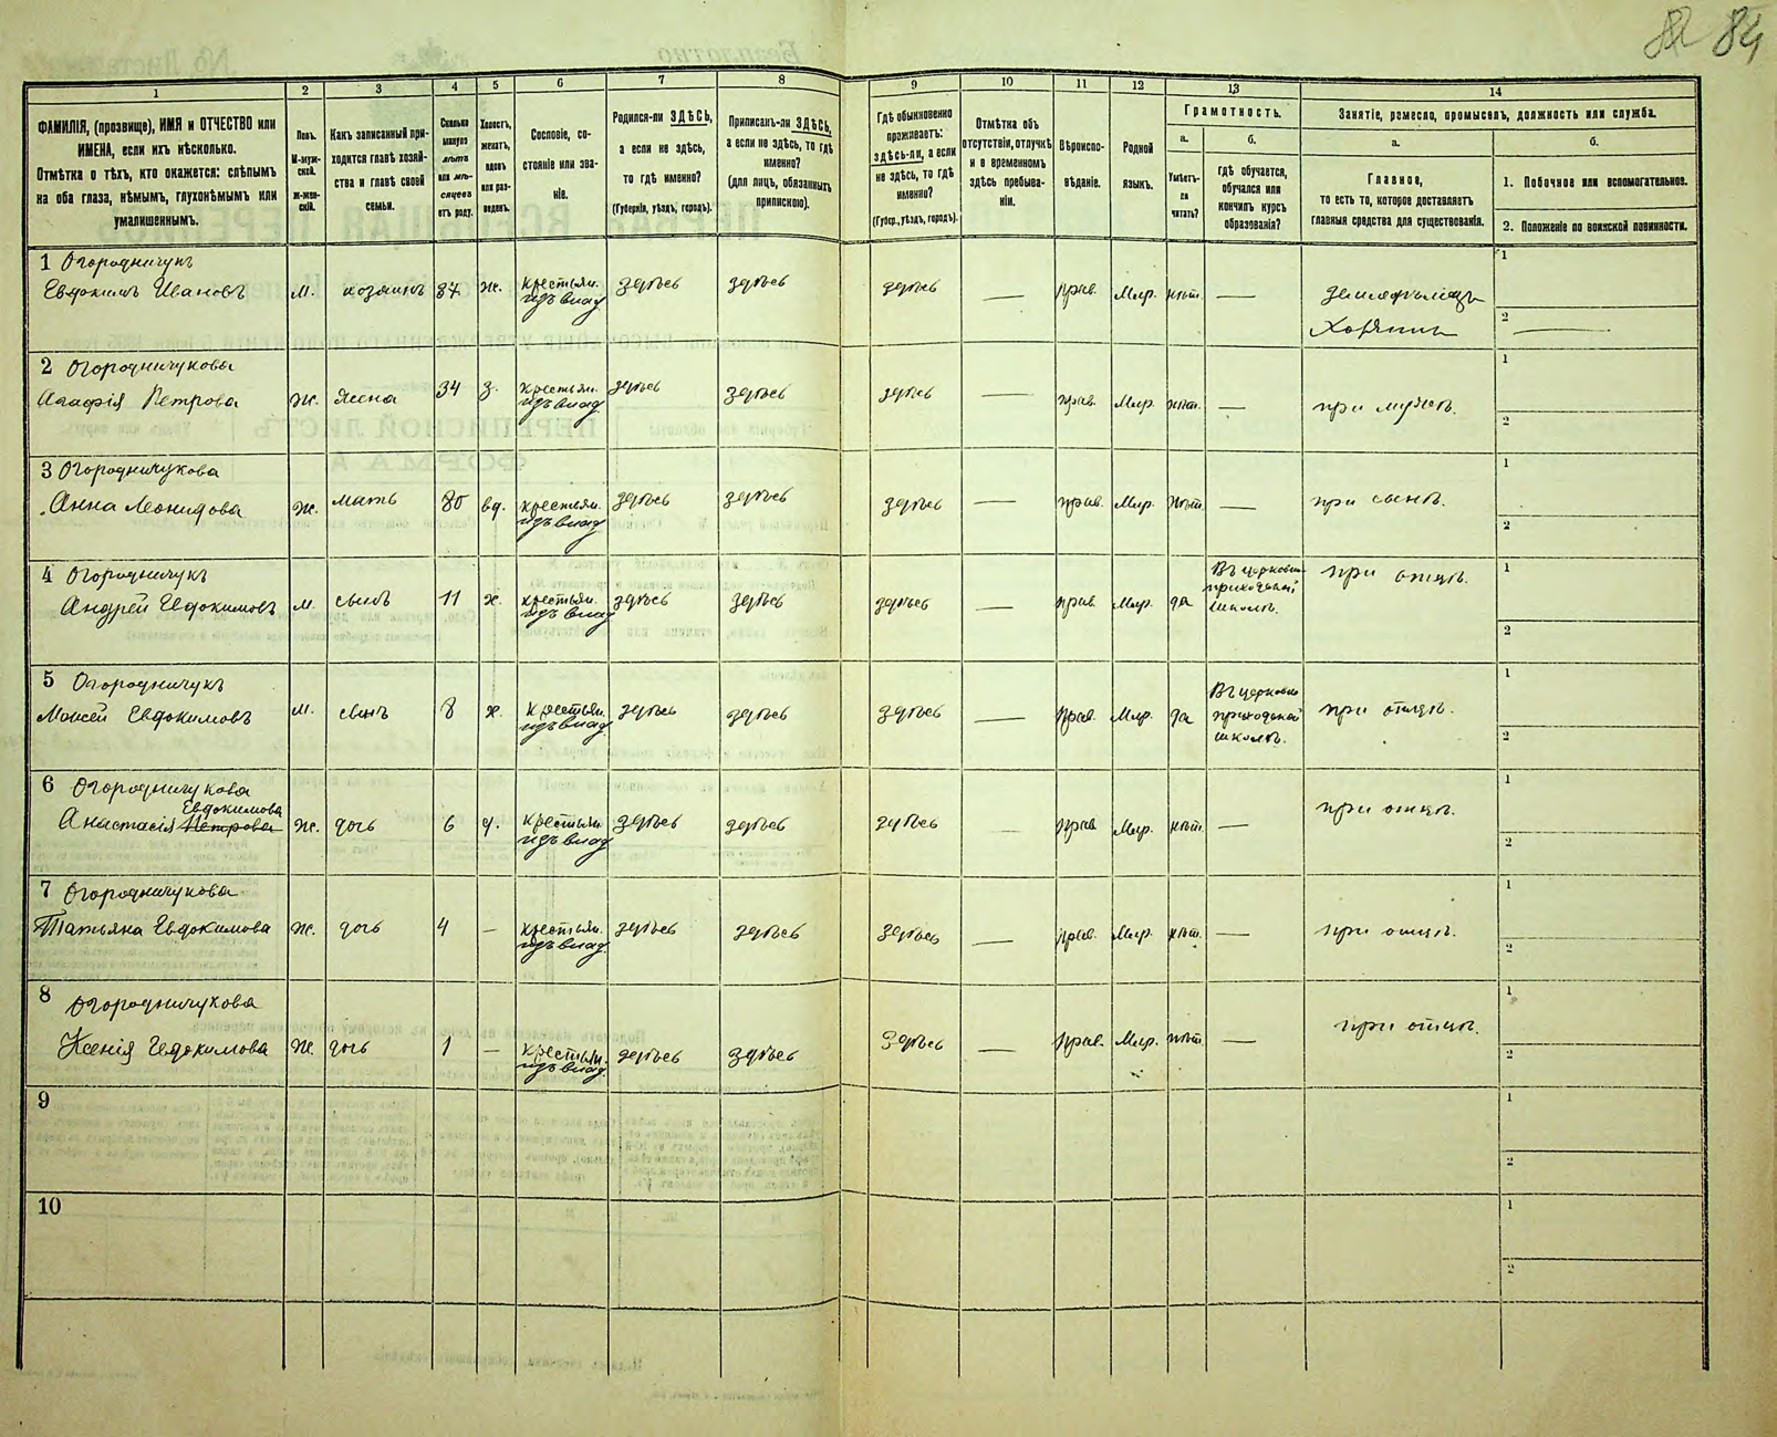 84
1
2
3
4
5
6
7
8
9
10
11
12
13
14
ФАМИЛІЯ, (прозвище), ИМЯ и ОТЧЕСТВО или
ИМЕНА, если ихъ нѣсколько.
Отмѣтка о тѣхъ, кто окажется: слѣпымъ
на оба глаза, нѣмымъ, глухонѣмымъ или
умалишеннымъ.
Полъ.
М-муж-
ской.
Ж-жен-
скій.
Какъ записанный при-
ходится главѣ хозяй-
ства и главѣ своей
семьи.
Сколько
минуло
лѣтъ
или мѣ-
сяцевъ
отъ роду.
Холостъ,
женатъ,
вдовъ
или раз-
веденъ.
Сословіе, со-
стояніе или зва-
ніе.
Родился-ли ЗДѢСЬ,
а если не здѣсь,
то гдѣ именно?
(Губернія, уѣздъ, городъ).
Приписанъ-ли ЗДѢСЬ,
а если не здѣсь, то гдѣ
именно?
(для лицъ, обязанныхъ
припискою).
Гдѣ обыкновенно
проживаетъ:
здѣсь-ли, а если
не здѣсь, то гдѣ
именно?
(Губер., уѣздъ, городъ).
Отмѣтка объ
отсутствіи, отлучкѣ
и о временномъ
здѣсь пребыва-
ніи.
Вѣроиспо-
вѣданіе.
Родной
языкъ.
Грамотность.
а.
Умѣетъ-
ли
читать?
б.
Гдѣ обучается,
обучался или
кончилъ курсъ
образованія?
Занятіе, ремесло, промыселъ, должность или служба.
а.
Главное,
то есть то, которое доставляетъ
главныя средства для существованія.
б.
1. Побочное или вспомогательное.
2. Положеніе по воинской повинности.
1 Огородничукъ
Евдокимъ Ивановъ м. хозяинъ 37 ж. крестьян. изъ влад. здѣсь здѣсь здѣсь — прав. Мир. нѣт. — земледѣлецъ
Хозяинъ
1
2 —
2 Огородничукова
Агафія Петрова ж. жена 34 з. крестьян. изъ влад. здѣсь здѣсь здѣсь — прав. Мир. нѣт. — при мужѣ.
1
2
3 Огородничукова
Анна Леонидова ж. мать 80 вд. крестьян. изъ влад. здѣсь здѣсь здѣсь — прав. Мир. нѣт. — при сынѣ.
1
2
4 Огородничукъ
Андрей Евдокимовъ м. сынъ 11 х. крестьян. изъ влад. здѣсь здѣсь здѣсь — прав. Мир. да
Въ церковно
приходской
школѣ.
при отцѣ.
1
2
5 Огородничукъ
Моисей Евдокимовъ м. сынъ 8 х. крестьян. изъ влад. здѣсь здѣсь здѣсь — прав. Мир. да
Въ церковно
приходской
школѣ.
при отцѣ.
1
2
6 Огородничукова
Евдокимова
Анастасія Петрова ж. дочь 6 д. крестьян. изъ влад. здѣсь здѣсь здѣсь — прав. Мир. нѣт. — при отцѣ.
1
2
7 Огородничукова
Татьяна Евдокимова ж. дочь 4 — крестьян. изъ влад. здѣсь здѣсь здѣсь — прав. Мир. нѣт. — при отцѣ.
1
2
8 Огородничукова
Ксенія Евдокимова ж. дочь 1 — крестьян. изъ влад. здѣсь здѣсь здѣсь — прав. Мир. нѣт. — при отцѣ.
1
2
9
1
2
10
1
2